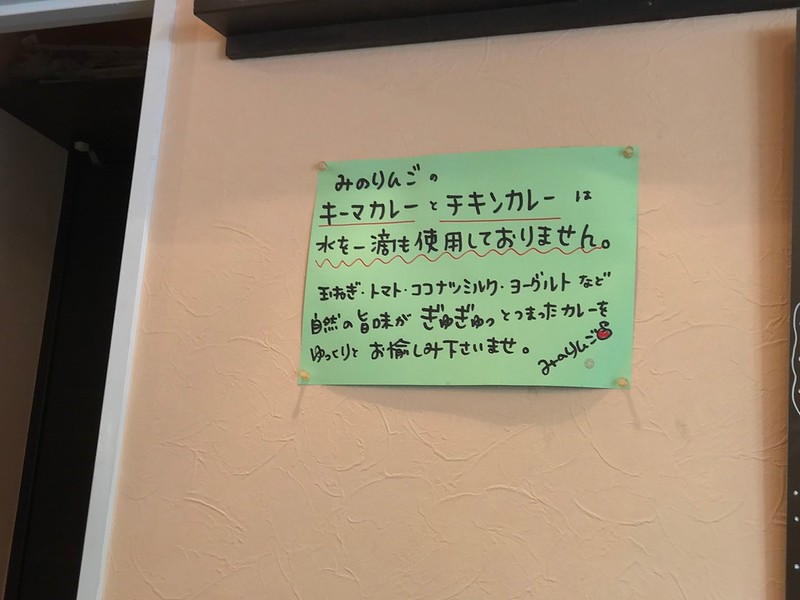 みのりんごの
キーマカレーとチキンカレーは
水を一滴も使用しておりません。
玉ねぎ・トマト・ココナツミルク・ヨーグルトなど
自然の旨味がぎゅぎゅっとつまったカレーを
ゆっくりとお愉しみ下さいませ。
みのりんご